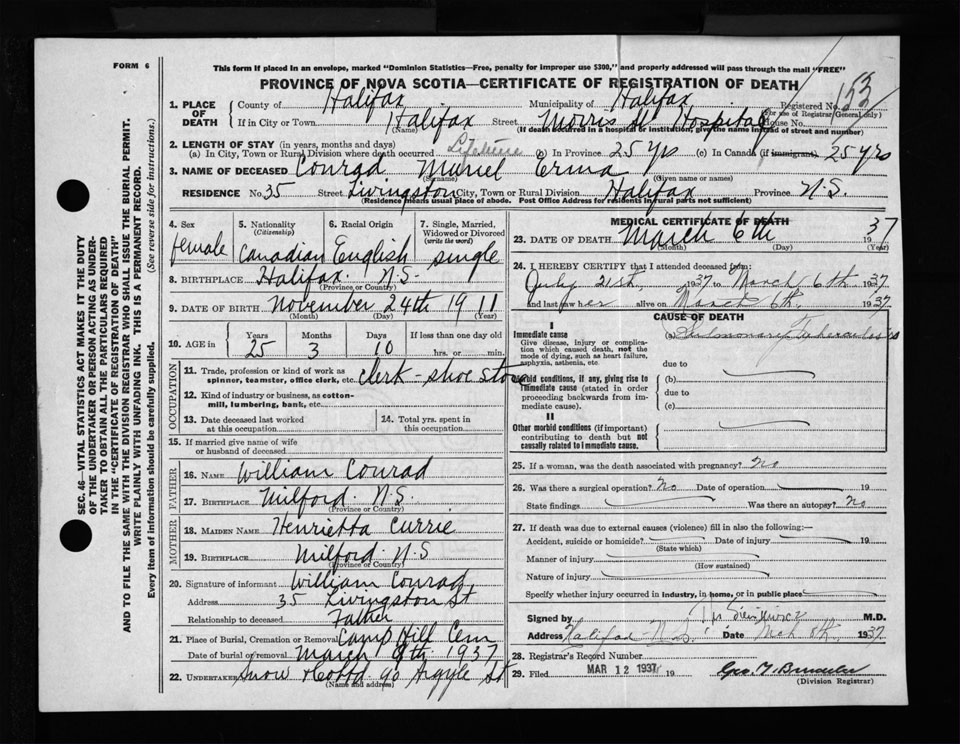 FORM 6
This form if placed in an envelope, marked "Dominion Statistics—Free, penalty for improper use $300," and properly addressed will pass through the mail "FREE"
PROVINCE OF NOVA SCOTIA—CERTIFICATE OF REGISTRATION OF DEATH
1. PLACE OF DEATH County of Halifax Municipality of Halifax Registered No. 153
(For use of Registrar General only)
If in City or Town Halifax Street Morris St Hospital House No.
(Name) (If death occurred in a hospital or institution, give the name instead of street and number)
2. LENGTH OF STAY (in years, months and days)
(a) In City, Town or Rural Division where death occurred Lifetime (b) In Province 25 yrs (c) In Canada (if immigrant) 25 yrs
3. NAME OF DECEASED Conrad Muriel Erma
(Surname) (Given name or names)
RESIDENCE No. 35 Street Livingston City, Town or Rural Division Halifax Province N.S.
(Residence means usual place of abode. Post Office Address for residents in rural parts not sufficient)
4. Sex female 5. Nationality (Citizenship) Canadian 6. Racial Origin English 7. Single, Married, Widowed or Divorced (write the word) single
8. BIRTHPLACE Halifax N.S.
(Province or Country)
9. DATE OF BIRTH November 24th 1911
(Month) (Day) (Year)
10. AGE in Years 25 Months 3 Days 10 If less than one day old hrs. or min.
OCCUPATION
11. Trade, profession or kind of work as spinner, teamster, office clerk, etc. clerk - shoe store
12. Kind of industry or business, as cotton-mill, lumbering, bank, etc.
13. Date deceased last worked at this occupation 14. Total yrs. spent in this occupation
15. If married give name of wife or husband of deceased
FATHER
16. NAME William Conrad
17. BIRTHPLACE Milford N.S.
(Province or Country)
MOTHER
18. MAIDEN NAME Henrietta Currie
19. BIRTHPLACE Milford N.S
(Province or Country)
20. Signature of informant William Conrad
Address 35 Livingston St
Relationship to deceased Father
21. Place of Burial, Cremation or Removal Camp Hill Cem
Date of burial or removal March 9th 1937
22. UNDERTAKER Snow 90 Argyle St
(Name and address)
MEDICAL CERTIFICATE OF DEATH
23. DATE OF DEATH March 6th 1937
(Month) (Day) (Year)
24. I HEREBY CERTIFY that I attended deceased from:
July 21st, 1937 to March 6th 1937
and last saw her alive on March 6th, 1937
CAUSE OF DEATH
I
Immediate cause (a) Pulmonary Tuberculosis
Give disease, injury or complication which caused death, not the mode of dying, such as heart failure, asphyxia, asthenia, etc.
due to
Morbid conditions, if any, giving rise to immediate cause (stated in order proceeding backwards from immediate cause).
(b)
due to
(c)
II
Other morbid conditions (if important) contributing to death but not causally related to immediate cause.
25. If a woman, was the death associated with pregnancy? no
26. Was there a surgical operation? No Date of operation 19
State findings Was there an autopsy? No
27. If death was due to external causes (violence) fill in also the following:—
Accident, suicide or homicide? Date of injury 19
(State which)
Manner of injury
(How sustained)
Nature of injury
Specify whether injury occurred in industry, in home, or in public place
Signed by M.D.
Address Halifax N.S. Date Mch 8th, 1937
28. Registrar's Record Number
29. Filed MAR 12 1937 19
(Division Registrar)
SEC. 46—VITAL STATISTICS ACT MAKES IT THE DUTY OF THE UNDERTAKER OR PERSON ACTING AS UNDERTAKER TO OBTAIN ALL THE PARTICULARS REQUIRED IN THE "CERTIFICATE OF REGISTRATION OF DEATH" AND TO FILE THE SAME WITH THE DIVISION REGISTRAR WHO SHALL ISSUE THE BURIAL PERMIT.
WRITE PLAINLY WITH UNFADING INK. THIS IS A PERMANENT RECORD.
Every item of information should be carefully supplied. (See reverse side for instructions.)